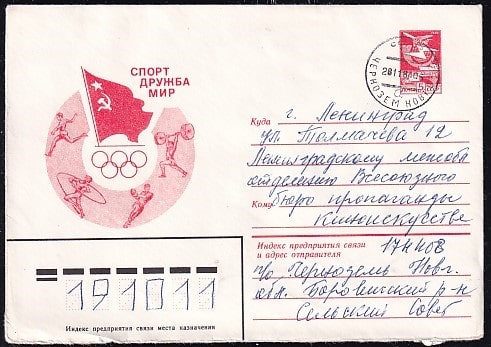 СПОРТ
ДРУЖБА
МИР
ЧЕРНОЗЕМ НОВГ
Куда
г. Ленинград
ул. Толмачева 12
Ленинградскому межоб
отделению Всесоюзного
Кому бюро пропаганды
Киноискусства
Индекс предприятия связи
и адрес отправителя
п/о
Новг.
обл. Боровичский р-н
Сельский Совет
191011
Индекс предприятия связи места назначения